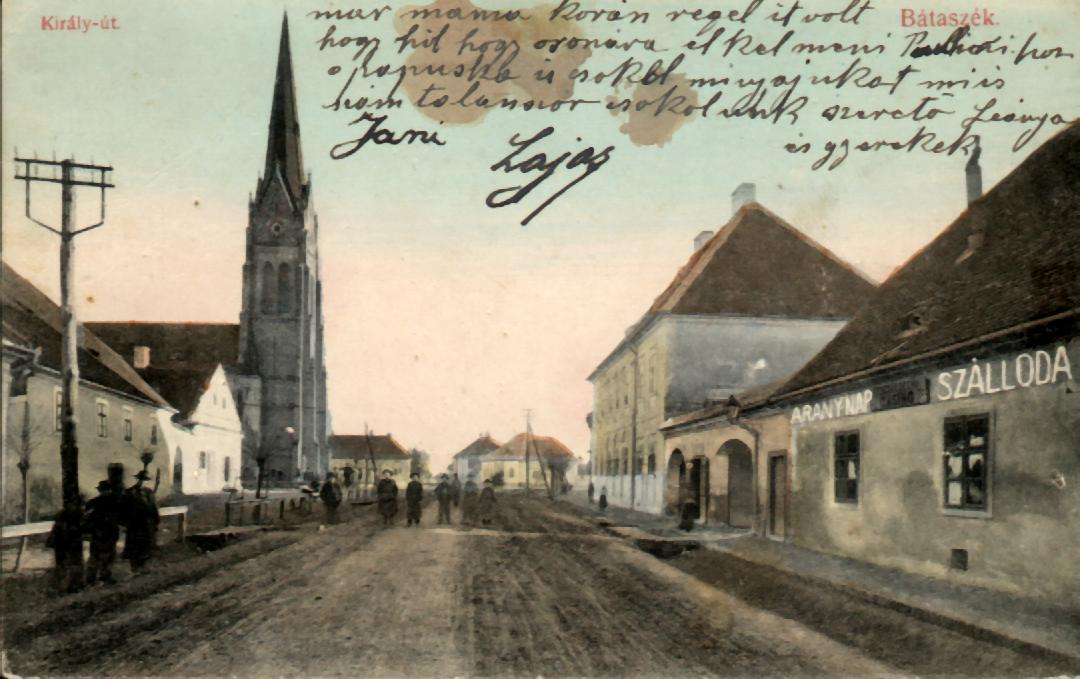 Király-út.
Bátaszék.
mar mama korán regel it volt
hogy hit hogy osonára el kel meni
papuska is csokol minyajukat mi is
számtalanszor csokolunk szerető Leánya
és gyerekek
Jani
Lajos
ARANYNAP
SZÁLLODA